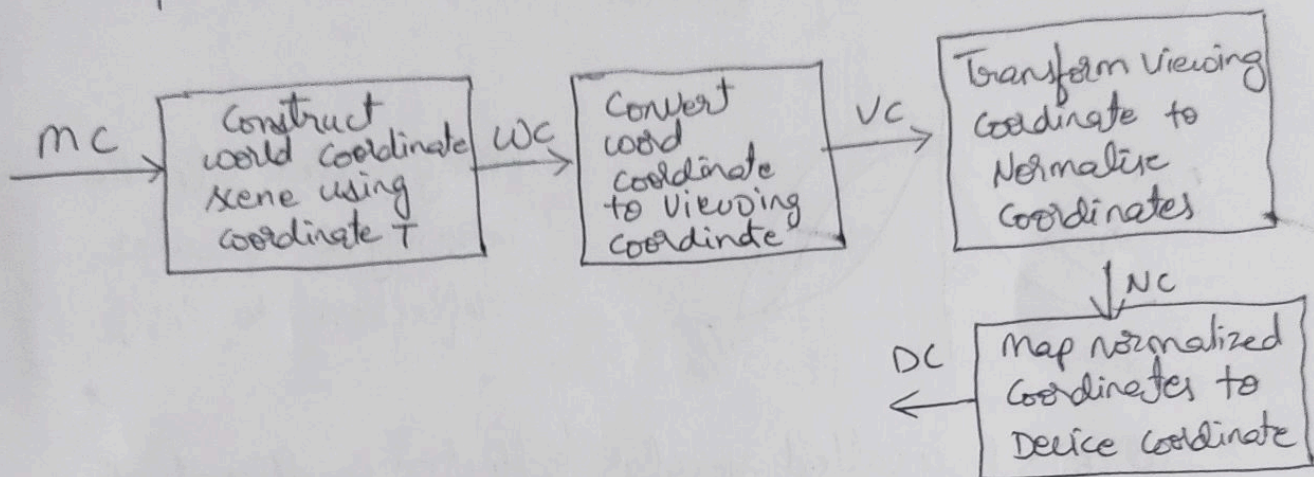 MC
Construct
world coordinate
scene using
coordinate T
WC
Convert
word
coordinate
to viewing
coordinte
VC
Transform viewing
coordinate to
Normalise
coordinates
NC
Map normalized
coordinates to
Device coordinate
DC